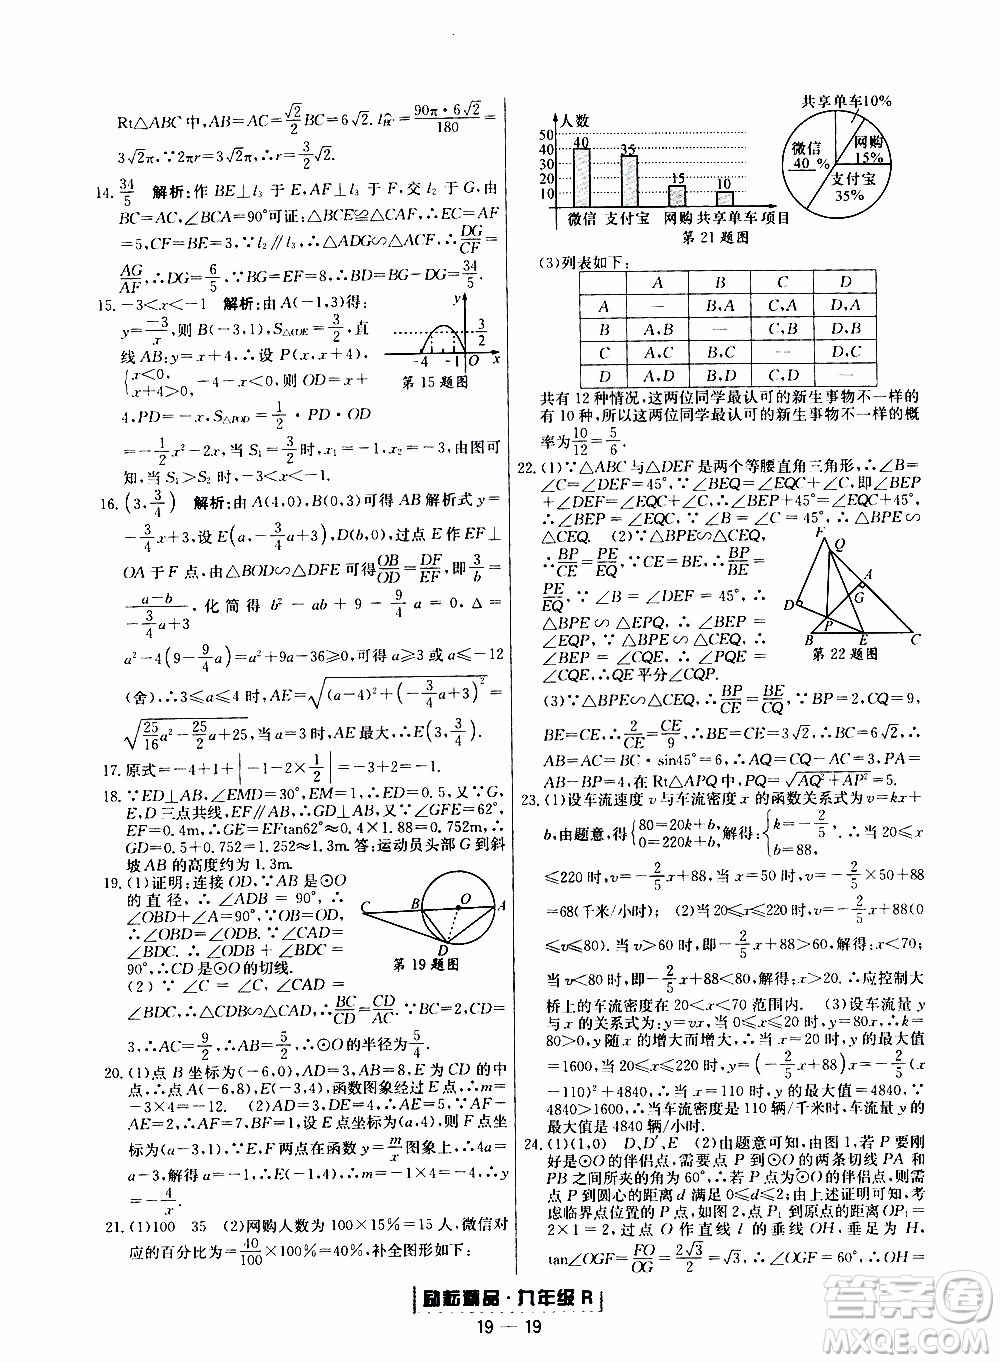 Rt△ABC中,AB=AC=√2/2 BC=6√2. l=90π·6√2/180=
3√2π.∵2πr=3√2π,∴r=3/2√2.
14. 34/5 解析:作BE⊥l₃于E,AF⊥l₃于F,交l₂于G,由
BC=AC,∠BCA=90°可证:△BCE≌△CAF,∴CE=AF
=5,CF=BE=3.∵l₂∥l₃,∴△ADG∽△ACF,∴DG/CF=
AG/AF,∴DG=6/5.∵BG=EF=8,∴BD=34/5.
15. -3<x<-1 解析:由A(-1,3)得:
y=-3/x,则B(-3,1),S△COE=3/2,直
线AB:y=x+4,∴设P(x,x+4),
{x<0, x+4>0, -4<x<0,则OD=x+
4,PD=-x,S△POD=1/2·PD·OD
=-1/2x²-2x,当S₁=3/2时,x₁=-1,x₂=-3,由图可
知,当S₁>S₂时,-3<x<-1.
y
3/2
-4 -1 O x
第15题图
16. (3,3/4) 解析:由A(4,0),B(0,3)可得AB解析式y=
-3/4x+3,设E(a,-3/4a+3),D(b,0),过点E作EF⊥
OA于F点,由△BOD∽△DFE可得OB/OD=DF/EF,即3/b=
(a-b)/(-3/4a+3),化简得b²-ab+9-9/4a=0,Δ=
a²-4(9-9/4a)=a²+9a-36≥0,可得a≥3或a≤-12
(舍).∴3≤a≤4时,AE=√((a-4)²+(-3/4a+3)²)
=√(25/16a²-25/2a+25),当a=3时,AE最大,∴E(3,3/4).
17. 原式=-4+1+|1-2×1/2|=-3+0... 
18. ∵ED⊥AB,∠EMD=30°,∴ED=0.5,又∵G,
E,D三点共线,EF∥AB,∴GD⊥AF,∵∠GFE=62°,
EF=0.4m,∴GE=EFtan62°≈0.4×1.88=0.752m,∴
GD=0.5+0.752=1.252≈1.3m.答:运动员头部G到斜
坡AB的高度约为1.3m.
19. (1)证明:连接OD,∵AB是⊙O
的直径,∴∠ADB=90°,∴
∠OBD+∠A=90°,∵OB=OD,
∴∠OBD=∠ODB,∵∠A=
∠BDC,∴∠ODB+∠BDC=
90°,∴CD是⊙O的切线.
(2)∵∠C=∠C,∠CAD=
∠BDC,∴△CDB∽△CAD,∴BC/CD=CD/AC,∵BC=2,CD=
3,∴AC=9/2,∴AB=5/2,∴⊙O的半径为5/4.
C B O A
D
第19题图
20. (1)点B坐标为(-6,0),AD=3,AB=8,E为CD的中
点,∴点A(-6,8),E(-3,4),函数图象经过E点,∴m=
-3×4=-12. (2)AD=3,DE=4,AE=5,∵AF-AE
=2,∴AF=7,BF=1,设E点坐标为(a,4),则F点坐标为
(a-3,1),∵E,F两点在函数y=m/x图象上,∴4a=a-
3,解得a=-1,∴E(-1,4),∴m=-1×4=-4,∴y=
-4/x.
21. (1)100 35 (2)网购人数为100×15%=15人,微信对
应的百分比为=40/100×100%=40%,补全图形如下:
人数
50
40
30
20
10
0
40
35
15
10
微信 支付宝 网购 共享单车 项目
共享单车10%
微信
40 %
网购
15%
支付宝
35%
第21题图
(3)列表如下:
A B C D
A — B,A C,A D,A
B A,B — C,B D,B
C A,C B,C — D,C
D A,D B,D C,D —
共有12种情况,这两位同学最认可的新生事物不一样的
有10种,所以这两位同学最认可的新生事物不一样的概
率为10/12=5/6.
22. (1)∵△ABC与△DEF是两个等腰直角三角形,∴∠B=
∠C=∠DEF=45°,∵∠BEQ=∠EQC+∠C,即∠BEP
+∠DEF=∠EQC+∠C,∴∠BEP+45°=∠EQC+45°,
∴∠BEP=∠EQC,∵∠B=∠C=45°,∴△BPE∽
△CEQ. (2)∵△BPE∽△CEQ,
∴BP/CE=PE/EQ,∵CE=BE,∴BP/BE=
PE/EQ,∵∠B=∠DEF=45°,∴
△BPE∽△EPQ,∴∠BEP=
∠EQP,∵△BPE∽△CEQ,∴
∠BEP=∠CQE,∴∠EQP=
∠CQE,∴QE平分∠CQP.
F Q
A
G
D
B P E C
第22题图
(3)∵△BPE∽△CEQ,∴BP/CE=BE/CQ,∵BP=2,CQ=9,
BE=CE,∴2/CE=CE/9,∴BE=CE=3√2,∴BC=6√2,∴
AB=AC=BC·sin45°=6,∴AQ=CQ-AC=3,PA=
AB-BP=4,在Rt△APQ中,PQ=√(AQ²+AP²)=5.
23. (1)设车流速度v与车流密度x的函数关系式为v=kx+
b,由题意,得{80=20k+b, 0=220k+b,解得:{k=-2/5, b=88,∴当20≤x
≤220时,v=-2/5x+88,当x=50时,v=-2/5×50+88
=68(千米/小时). (2)当20≤x≤220时,v=-2/5x+88(0
≤v≤80).当v>60时,即-2/5x+88>60,解得:x<70;当
当v<80时,即-2/5x+88<80,解得:x>20,∴应控制大
桥上的车流密度在20<x<70范围内. (3)设车流量y
与x的关系式为:y=vx,当0≤x≤20时,y=80x,∴k=
80>0,y随x的增大而增大,∴当x=20时,y的最大值
=1600,当20≤x≤220时,y=(-2/5x+88)x=-2/5(x
-110)²+4840,∴当x=110时,y的最大值=4840,∵
4840>1600,∴当车流密度是110辆/千米时,车流量y的最
大值是4840辆/小时.
24. (1)(1,0) D,D′,E (2)由题意可知,若P要刚
好是⊙O的伴侣点,需点P到⊙O的两条切线PA和
PB之间所夹的角为60°,∴若P点为⊙O的伴侣点,则需
点P到圆心的距离d满足0≤d≤2;由上述证明可知,考
虑临界点位置的P点,如图2,点P₁到原点的距离OP₁=
2×1=2,过点O作直线l的垂线OH,垂足为H,
tan∠OGF=FO/OG=2√3/2=√3,∴∠OGF=60°,∴OH=
励耘精品·九年级 R
19 — 19
答案圈
MXQE.COM